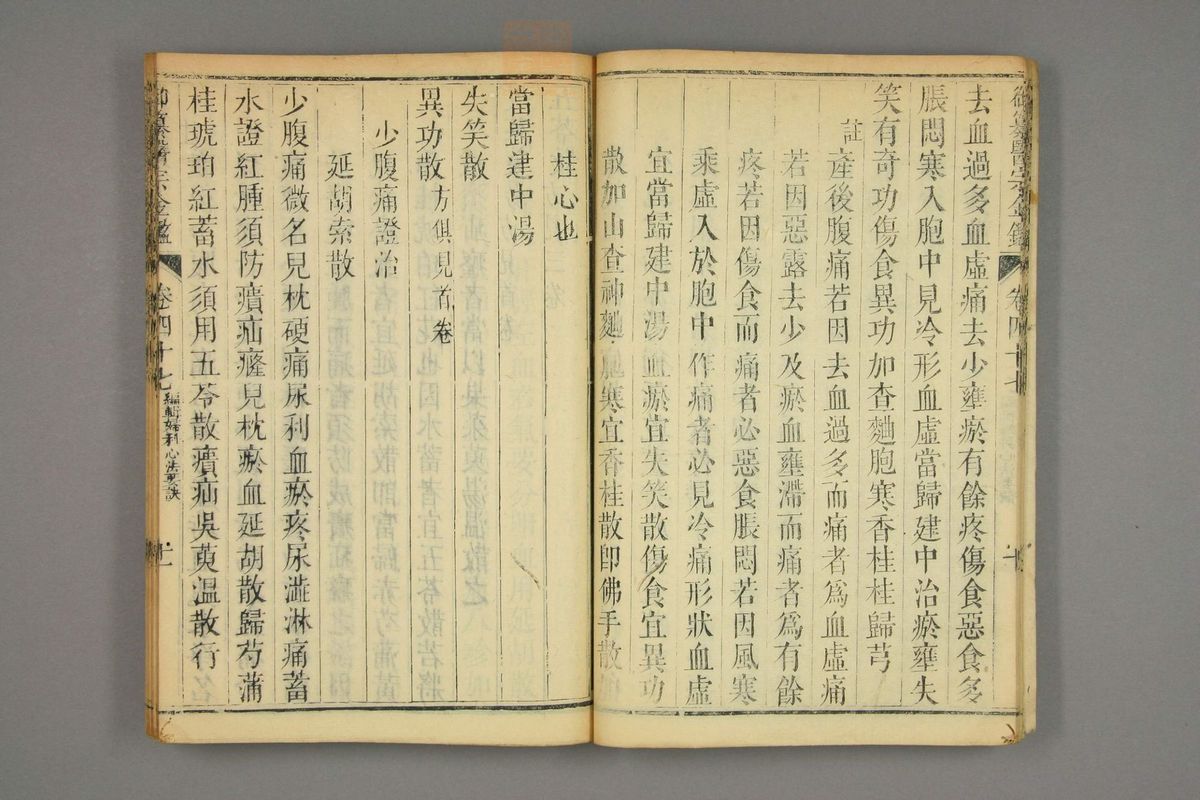 御纂醫宗金鑑 卷四十七
去血過多血虛痛去少壅瘀有餘疼傷食惡食多
脹悶寒入胞中見冷形血虛當歸建中治瘀壅失
笑有奇功傷食異功加查麯胞寒香桂桂歸芎
註 產後腹痛若因去血過多而痛者爲血虛痛
若因惡露去少及瘀血壅滯而痛者爲有餘
疼若因傷食而痛者必惡食脹悶若因風寒
乘虛入於胞中作痛者必見冷痛形狀血虛
宜當歸建中湯血瘀宜失笑散傷食宜異功
散加山查神麯胞寒宜香桂散卽佛手散加
桂心也
當歸建中湯
失笑散
異功散 方俱見首卷
少腹痛證治
延胡索散
少腹痛微名兒枕硬痛尿利血瘀疼尿澁淋痛蓄
水證紅腫須防㿉疝癰兒枕瘀血延胡散歸芍蒲
桂琥珀紅蓄水須用五苓散㿉疝吳萸溫散行
御纂醫宗金鑑 卷四十七 編輯婦科心法要訣